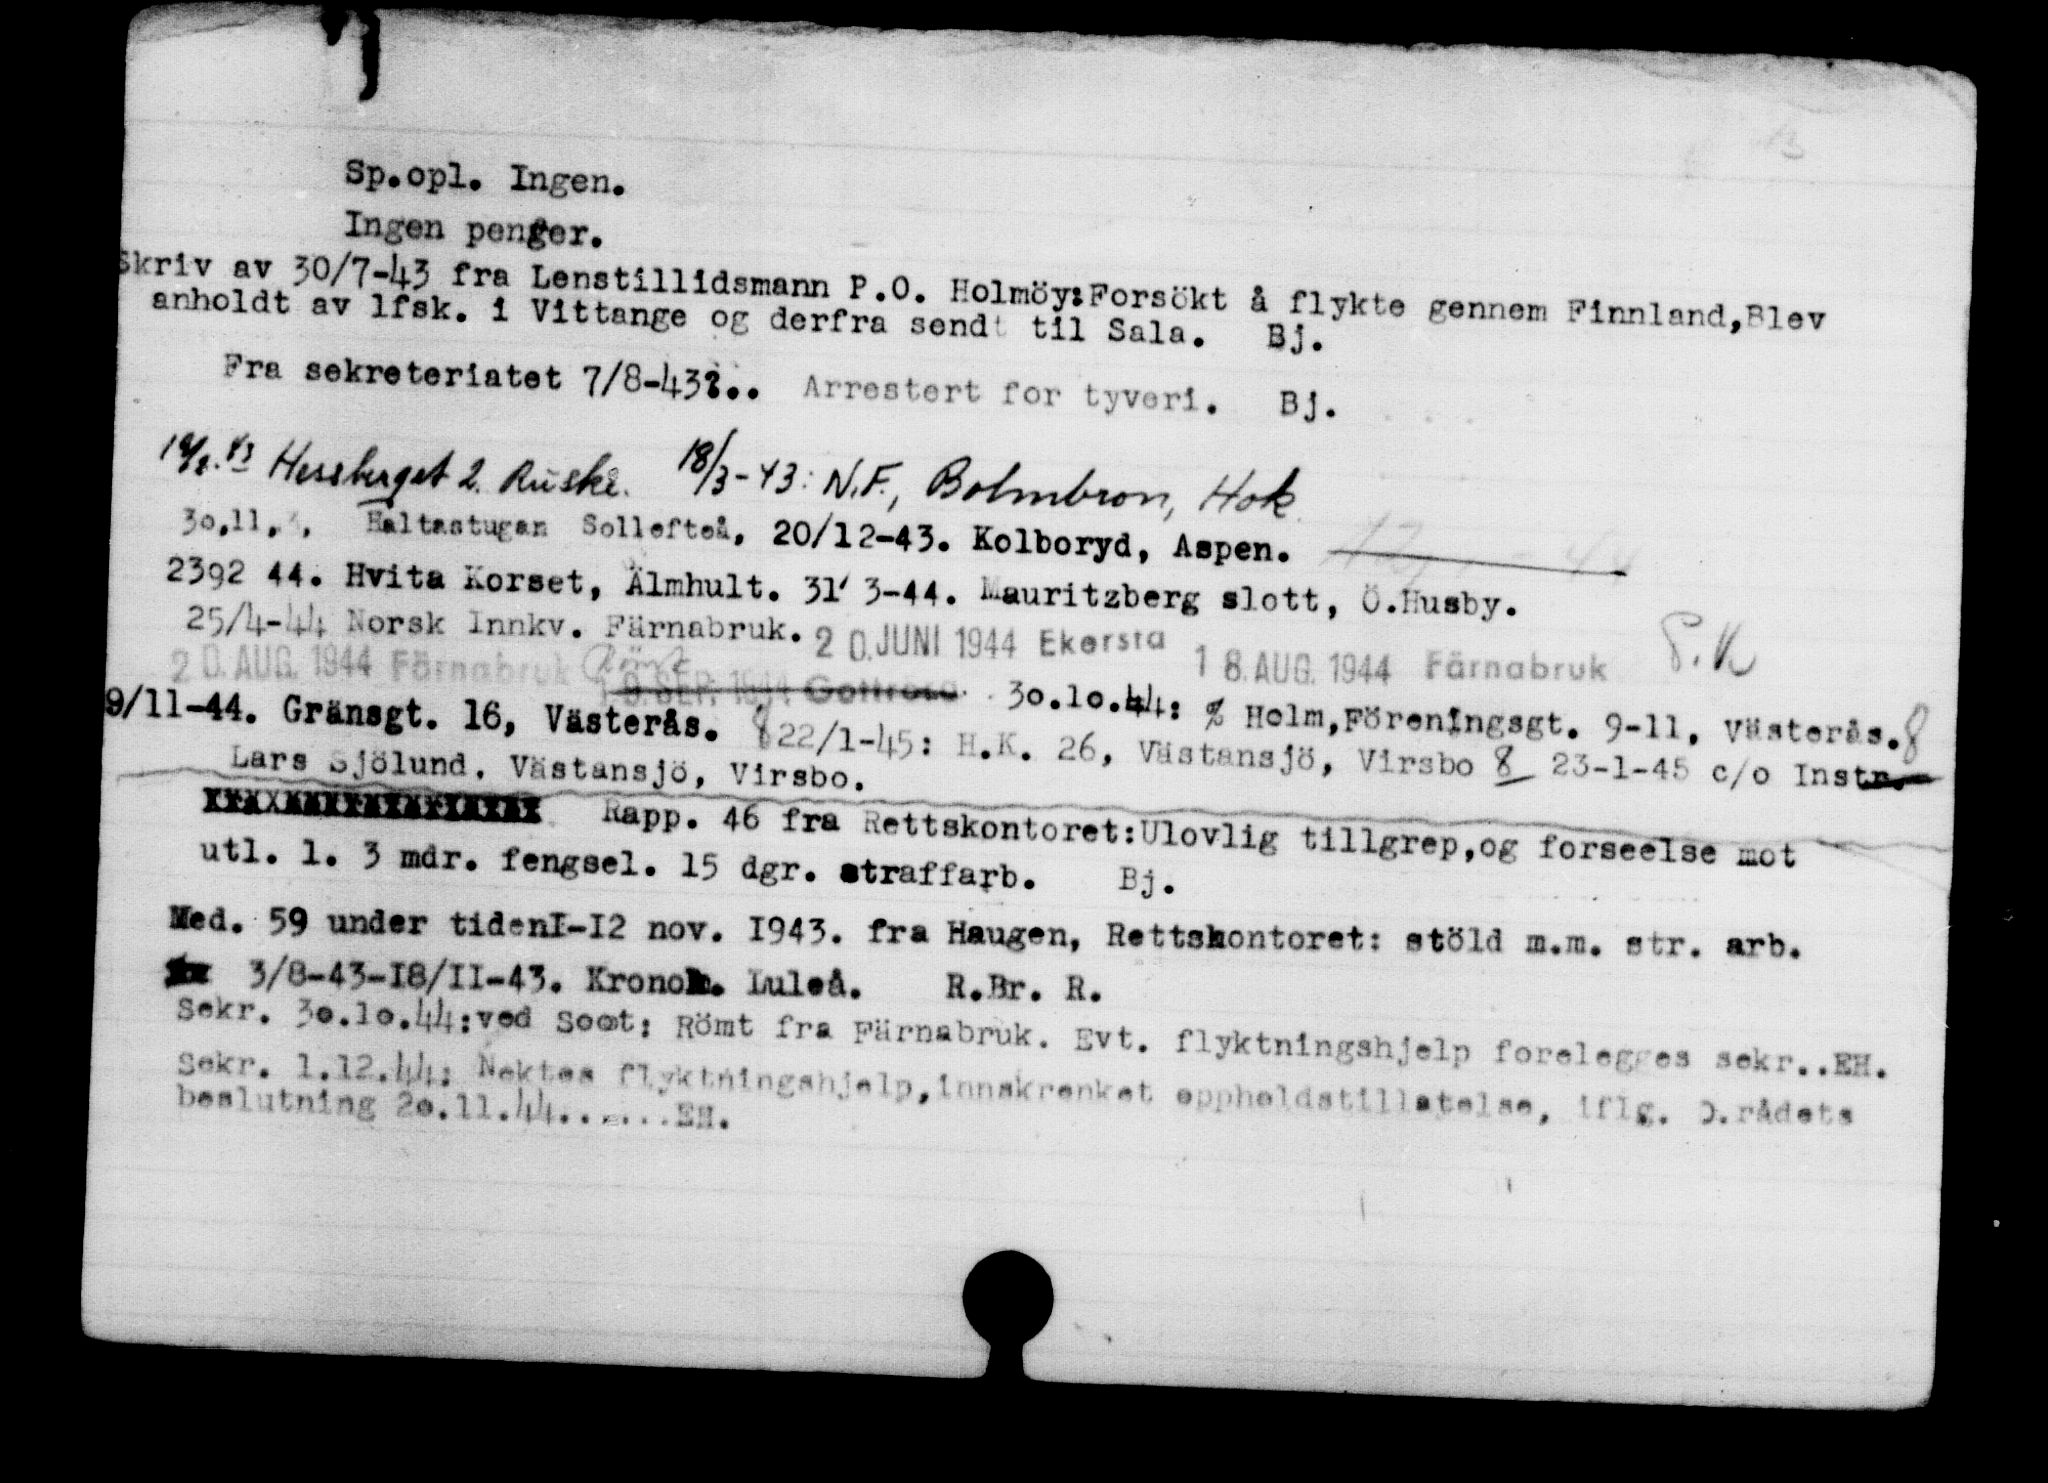 Sp.opl. Ingen.
Ingen penger.
Skriv av 30/7-43 fra Lenstillidsmann P.O. Holmöy:Forsökt å flykte gennem Finnland,Blev
anholdt av lfsk. i Vittange og derfra sendt til Sala. Bj.
Fra sekreteriatet 7/8-43?.. Arrestert for tyveri. Bj.
Hessberget 2. Ruske. 18/3-43: N.F., Bolmbron, Hok.
30.11. Haltastugan Sollefteå, 20/12-43. Kolboryd, Aspen.
2392 44. Hvita Korset, Älmhult. 31' 3-44. Mauritzberg slott, Ö.Husby.
25/4-44 Norsk Innkv. Färnabruk. 20. JUNI 1944 Ekersta 18. AUG. 1944 Färnabruk S.K
20. AUG. 1944 Färnabruk Römt 19. SEP. 1944 Gottröra 30.10.44: % Holm,Föreningsgt. 9-11, Västerås. 8
9/11-44. Gränsgt. 16, Västerås. 8 22/1-45: H.K. 26, Västansjö, Virsbo 8 23-1-45 c/o Instr.
Lars Sjölund, Västansjö, Virsbo.
Rapp. 46 fra Rettskontoret:Ulovlig tillgrep,og forseelse mot
utl. l. 3 mdr. fengsel. 15 dgr. straffarb. Bj.
Med. 59 under tidenI-I2 nov. I943. fra Haugen, Rettskontoret: stöld m.m. str. arb.
3/8-43-I8/II-43. Kronoh. Luleå. R.Br. R.
Sekr. 30.10.44:ved Soot: Römt fra Färnabruk. Evt. flyktningshjelp forelegges sekr..EH.
Sekr. 1.12.44: Nektes flyktningshjelp,innskrenket oppholdstillatelse, iflg. D.rådets
beslutning 20.11.44.......EH.